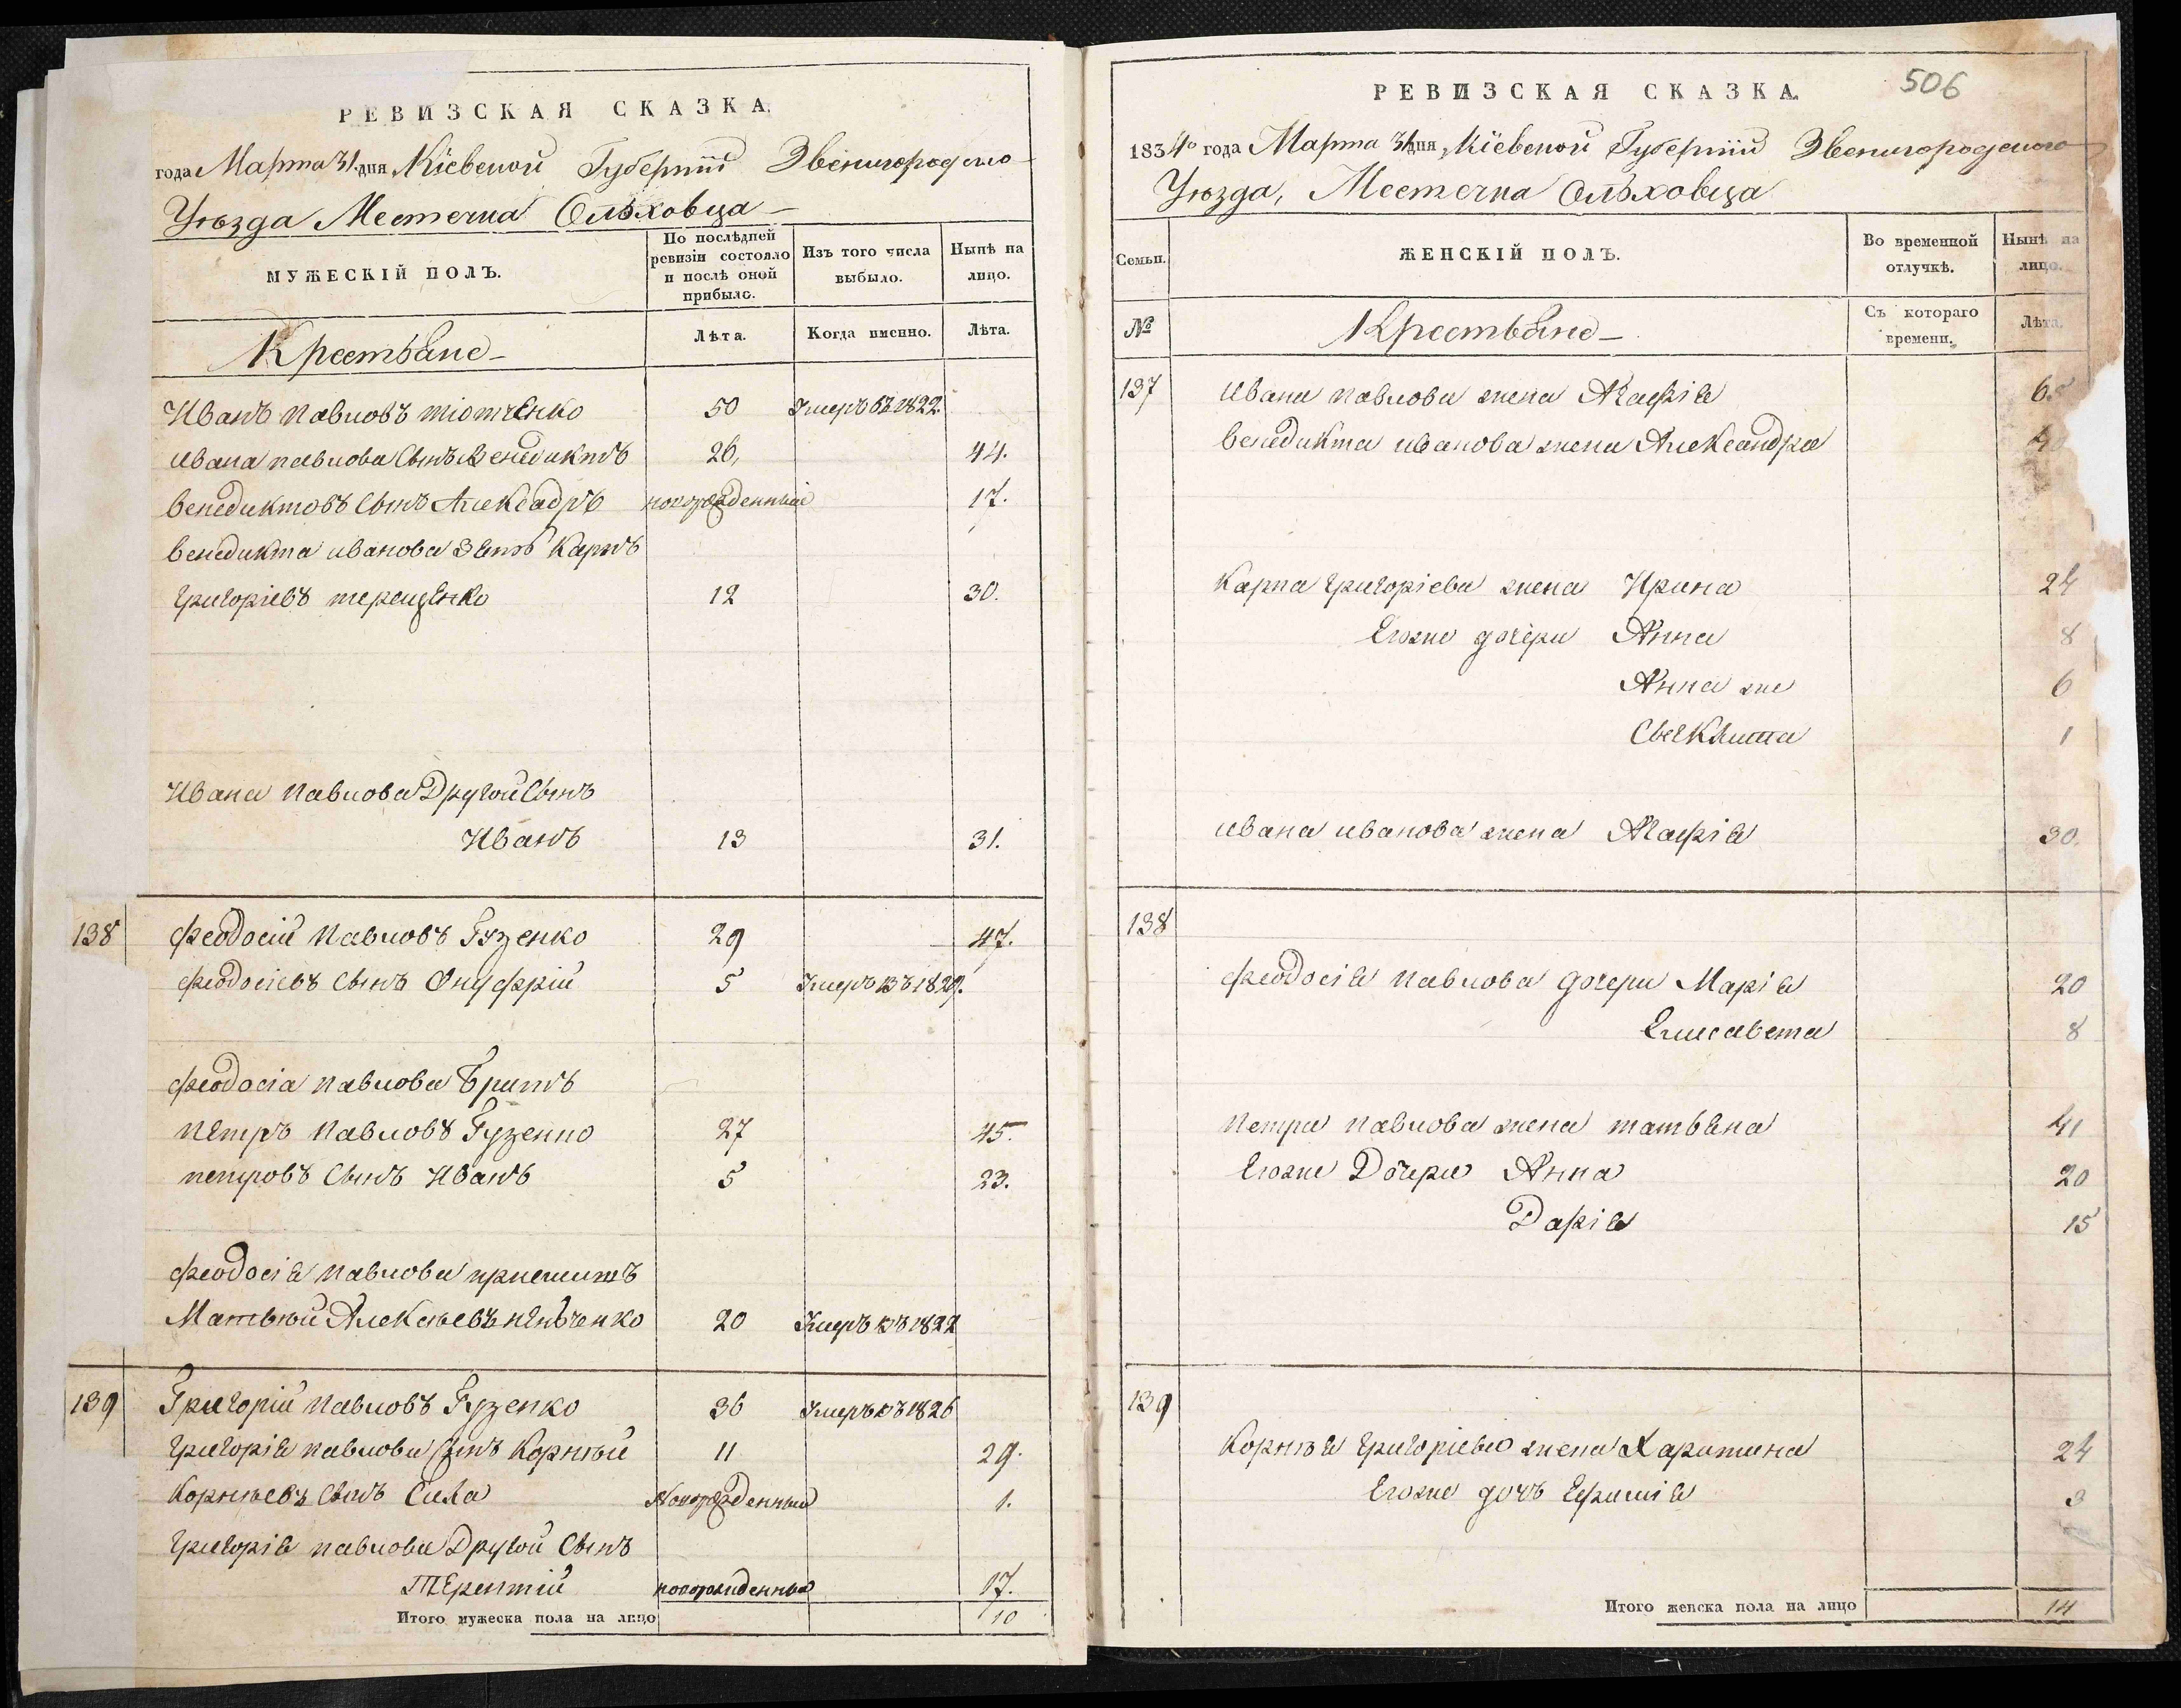 РЕВИЗСКАЯ СКАЗКА.
года Марта 31. дня Кіевской Губерніи Звенигородского
Уѣзда Местечка Ольховца
МУЖЕСКІЙ ПОЛЪ.
По послѣдней ревизіи состояло и послѣ оной прибыло.
Изъ того числа выбыло.
Нынѣ на лицо.
Крестьяне
Лѣта.
Когда именно.
Лѣта.
Иванъ Павловъ тютченко 50 Умеръ въ 1822.
ивана павлова Сынъ Венедиктъ 26, 44.
венедиктовъ Сынъ Алексадръ новорожденный 17.
венедикта иванова Зять Карпъ
григоріевъ терещенко 12 30.
Ивана Павлова Другой Сынъ
Иванъ 13 31.
138 Феодосій Павловъ Гузенко 29 47.
феодосіевъ Сынъ Онуфрій 5 Умеръ въ 1829.
Феодосіа Павлова Братъ
Петръ Павловъ Гузенко 27 45.
петровъ Сынъ Иванъ 5 23.
Феодосія Павлова приемышъ
Матвѣй Алексѣевъ 20 Умеръ въ 1822
139 Григорій Павловъ Гузенко 36 Умеръ въ 1826
григорія павлова Сынъ Корнѣй 11 29.
Корнѣевъ Сынъ Сила Новорожденный 1.
григорія павлова Другой Сынъ
Терентій новорожденный 17.
Итого мужеска пола на лицо 10
РЕВИЗСКАЯ СКАЗКА.
506
1834го года Марта 31 дня Кіевской Губерніи Звенигородского
Уѣзда, Местечка Ольховца
Семьи.
ЖЕНСКІЙ ПОЛЪ.
Во временной отлучкѣ.
Нынѣ на лицо.
№
Крестьяне
Съ котораго времени.
Лѣта.
137 ивана павлова жена Агафія
венедикта иванова жена Александра
Карпа григоріева жена Ирина 24
Егоже дочери Анна 8
Анна же 6
1
ивана иванова жена Агафія 30.
138
Феодосія Павлова дочери Марія 20
Елисавета 8
Петра Павлова жена татьяна 41
Егоже Дочери Анна 20
Дарія 15
139
Корнѣя григоріево жена Харитина 24
Егоже дочь Ефимія 3
Итого женска пола на лицо 14